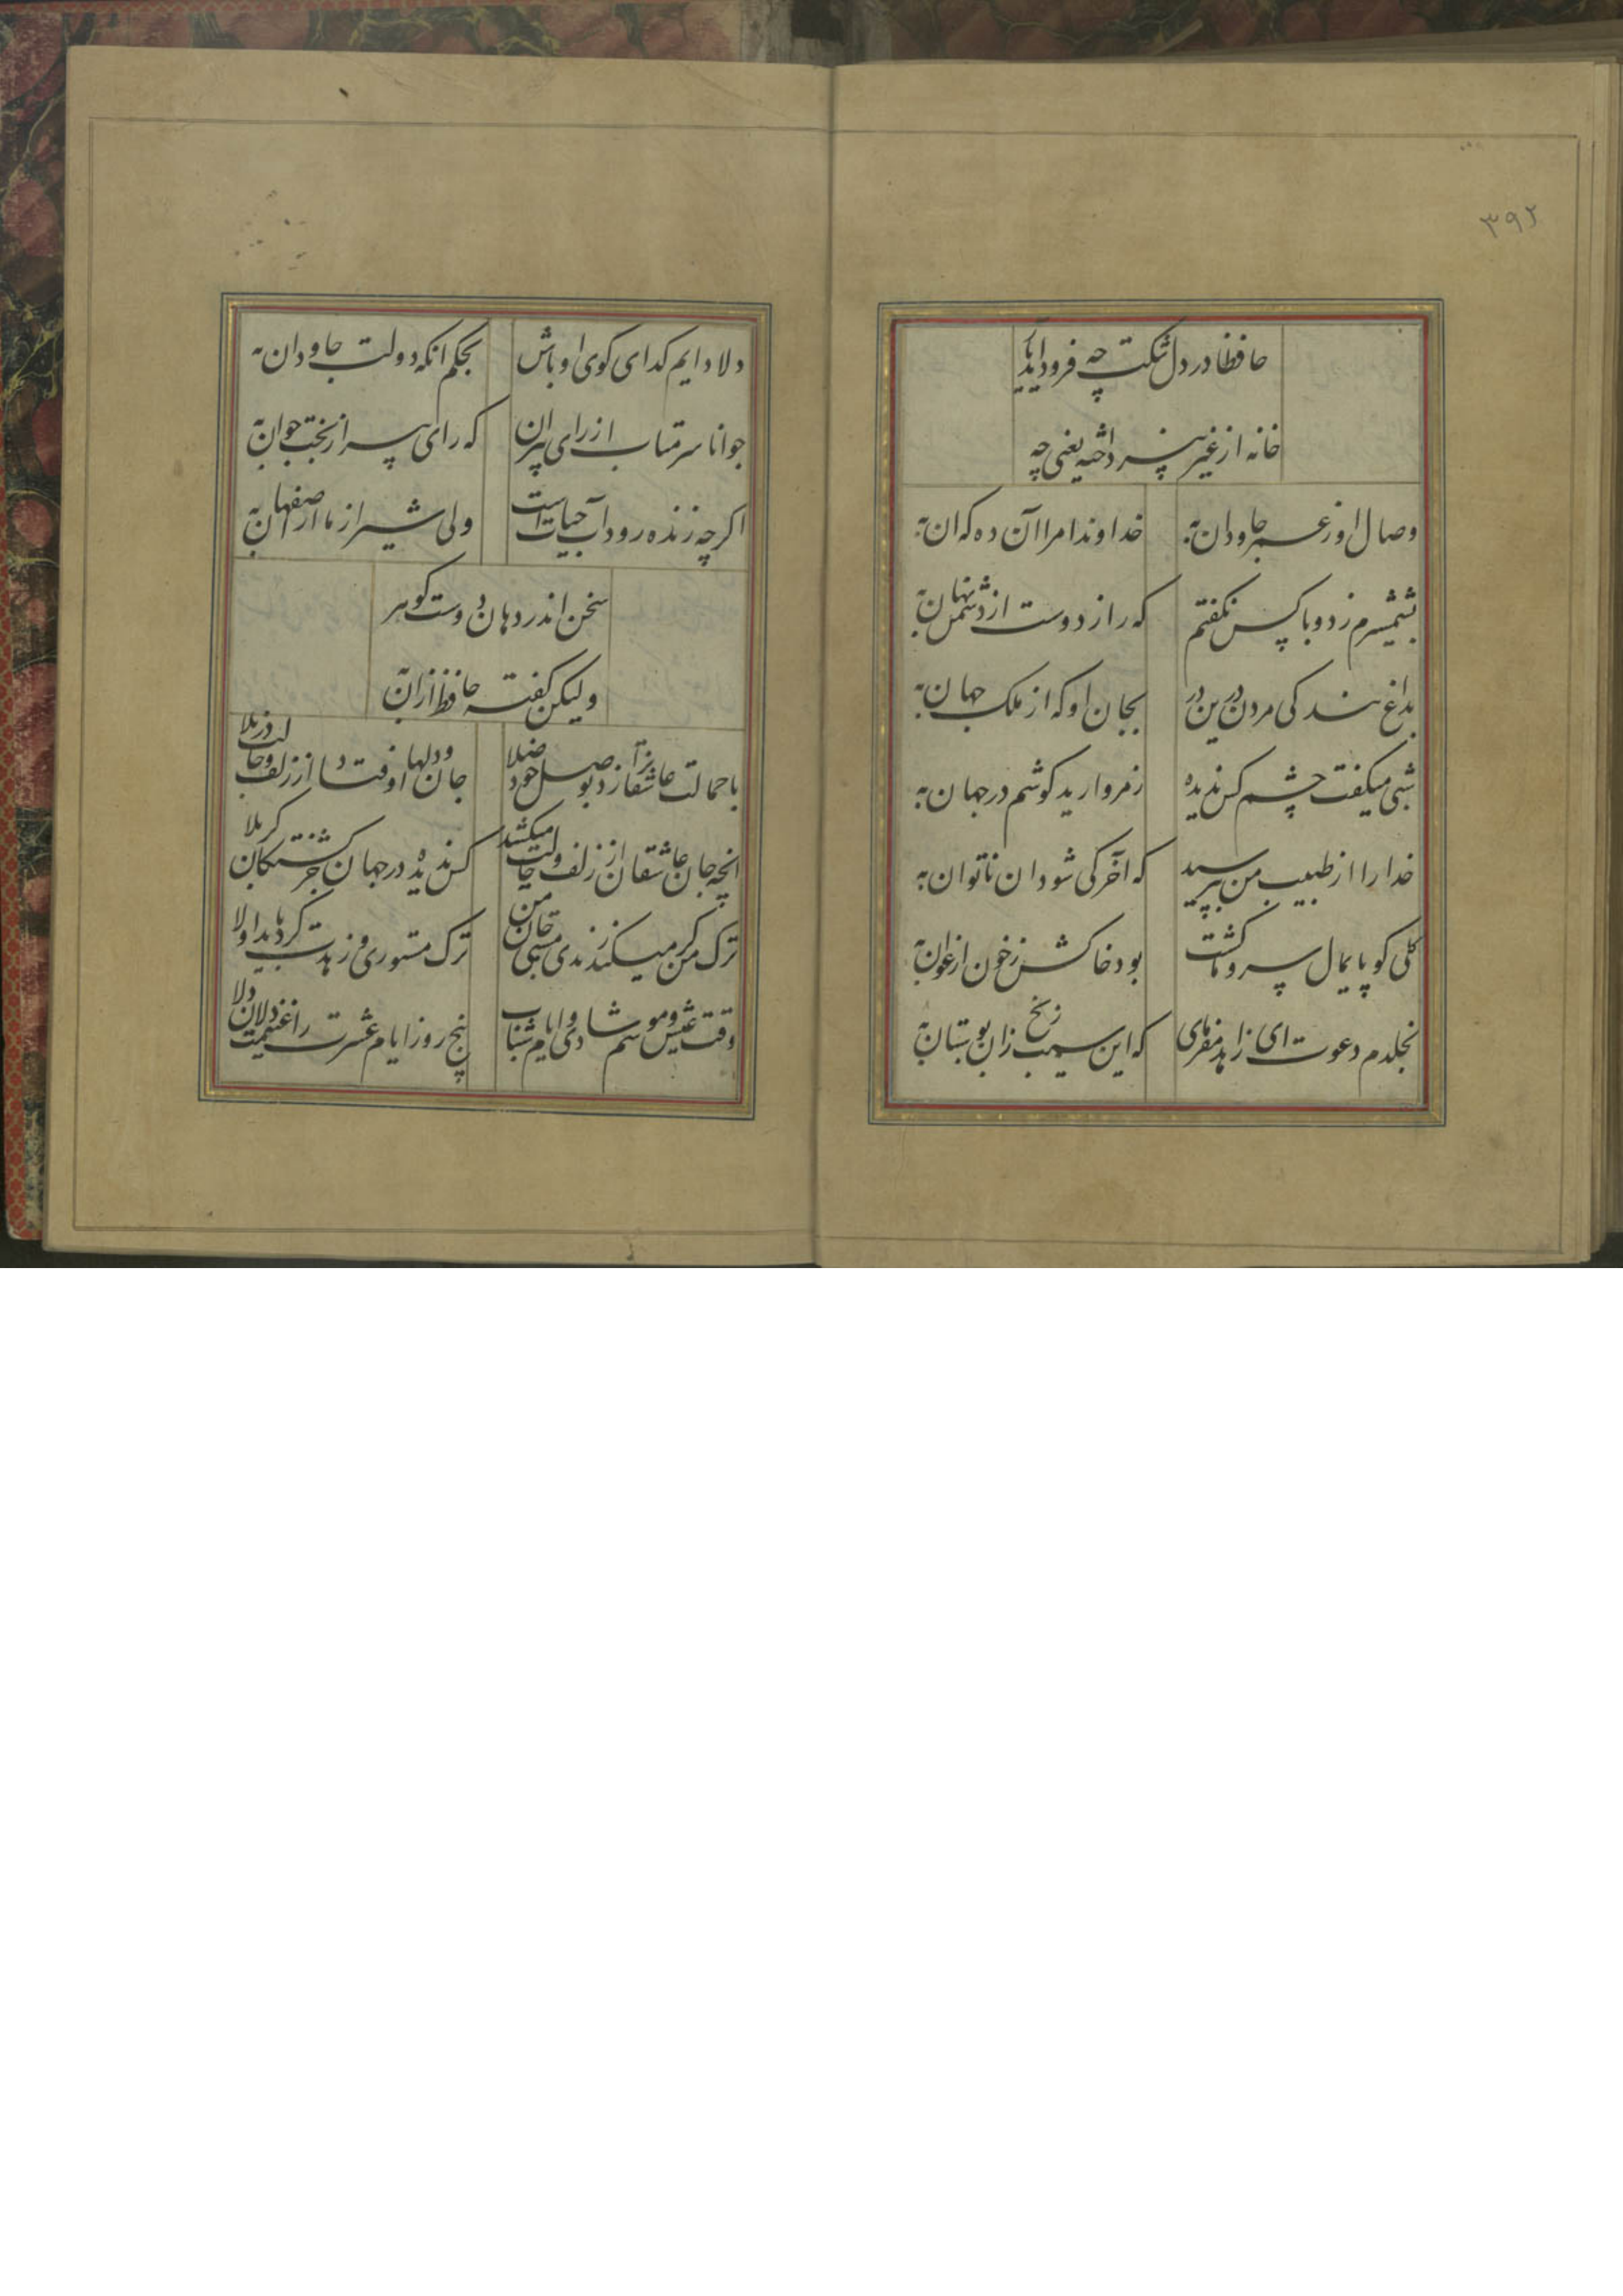 ۳۹۲
حافظا در دل تنگت چه فرود آید یار
خانه از غیر نپرداخته یعنی چه
وصال او ز عمر جاودان به خداوندا مرا آن ده که آن به
بشمشیرم زد و با کس نگفتم که راز دوست از دشمن نهان به
بداغ بندگی مردن درین در بجان او که از ملک جهان به
شبی میگفت چشم کس ندیده ز مروارید گوشم در جهان به
خدا را از طبیب من بپرسید که آخر کی شود آن ناتوان به
گلی کو پایمال سرو ما گشت بود خاکش ز خون ارغوان به
بخلدم دعوت ای زاهد مفرمای که این سیب زنخ زان بوستان به
دلا دایم گدای کوی او باش بحکم آنکه دولت جاودان به
جوانا سر متاب از رای پیران که رای پیر از بخت جوان به
اگر چه زنده رود آب حیات است ولی شیراز ما از اصفهان به
سخن اندر دهان دوست گوهر
ولیکن گفته حافظ از آن به
با جمالت عاشقانرا زد بوصل خود صلا جان و دلها اوفتاد از زلف و خالت در بلا
آنچه جان عاشقان از زلف و خالت میکشد کس ندیده در جهان جز کشتگان کربلا
ترک من گر میکند رندی و مستی جان من ترک مستوری و زهدت کرد باید اولا
وقت عیش و موسم شادی و ایام شباب پنج روز ایام عشرت را غنیمت دان دلا